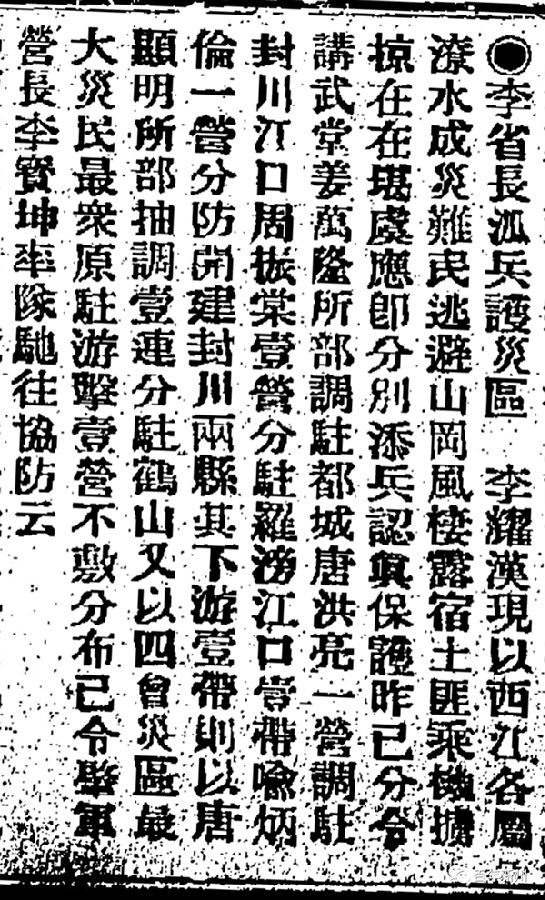 ◉李省長泒兵護災區　李耀漢現以西江各屬
潦水成災難民逃避山岡風棲露宿土匪乘機擄
掠在在堪虞應卽分別添兵認眞保護昨已分令
講武堂姜萬隆所部調駐都城唐洪亮一營調駐
封川江口周振棠壹營分駐羅滂江口壹帶喩炳
倫一營分防開建封川兩縣其下游壹帶則以唐
顯明所部抽調壹連分駐鶴山又以四會災區最
大災民最衆原駐游擊壹營不敷分布已令肇軍
營長李坤率隊馳往協防云